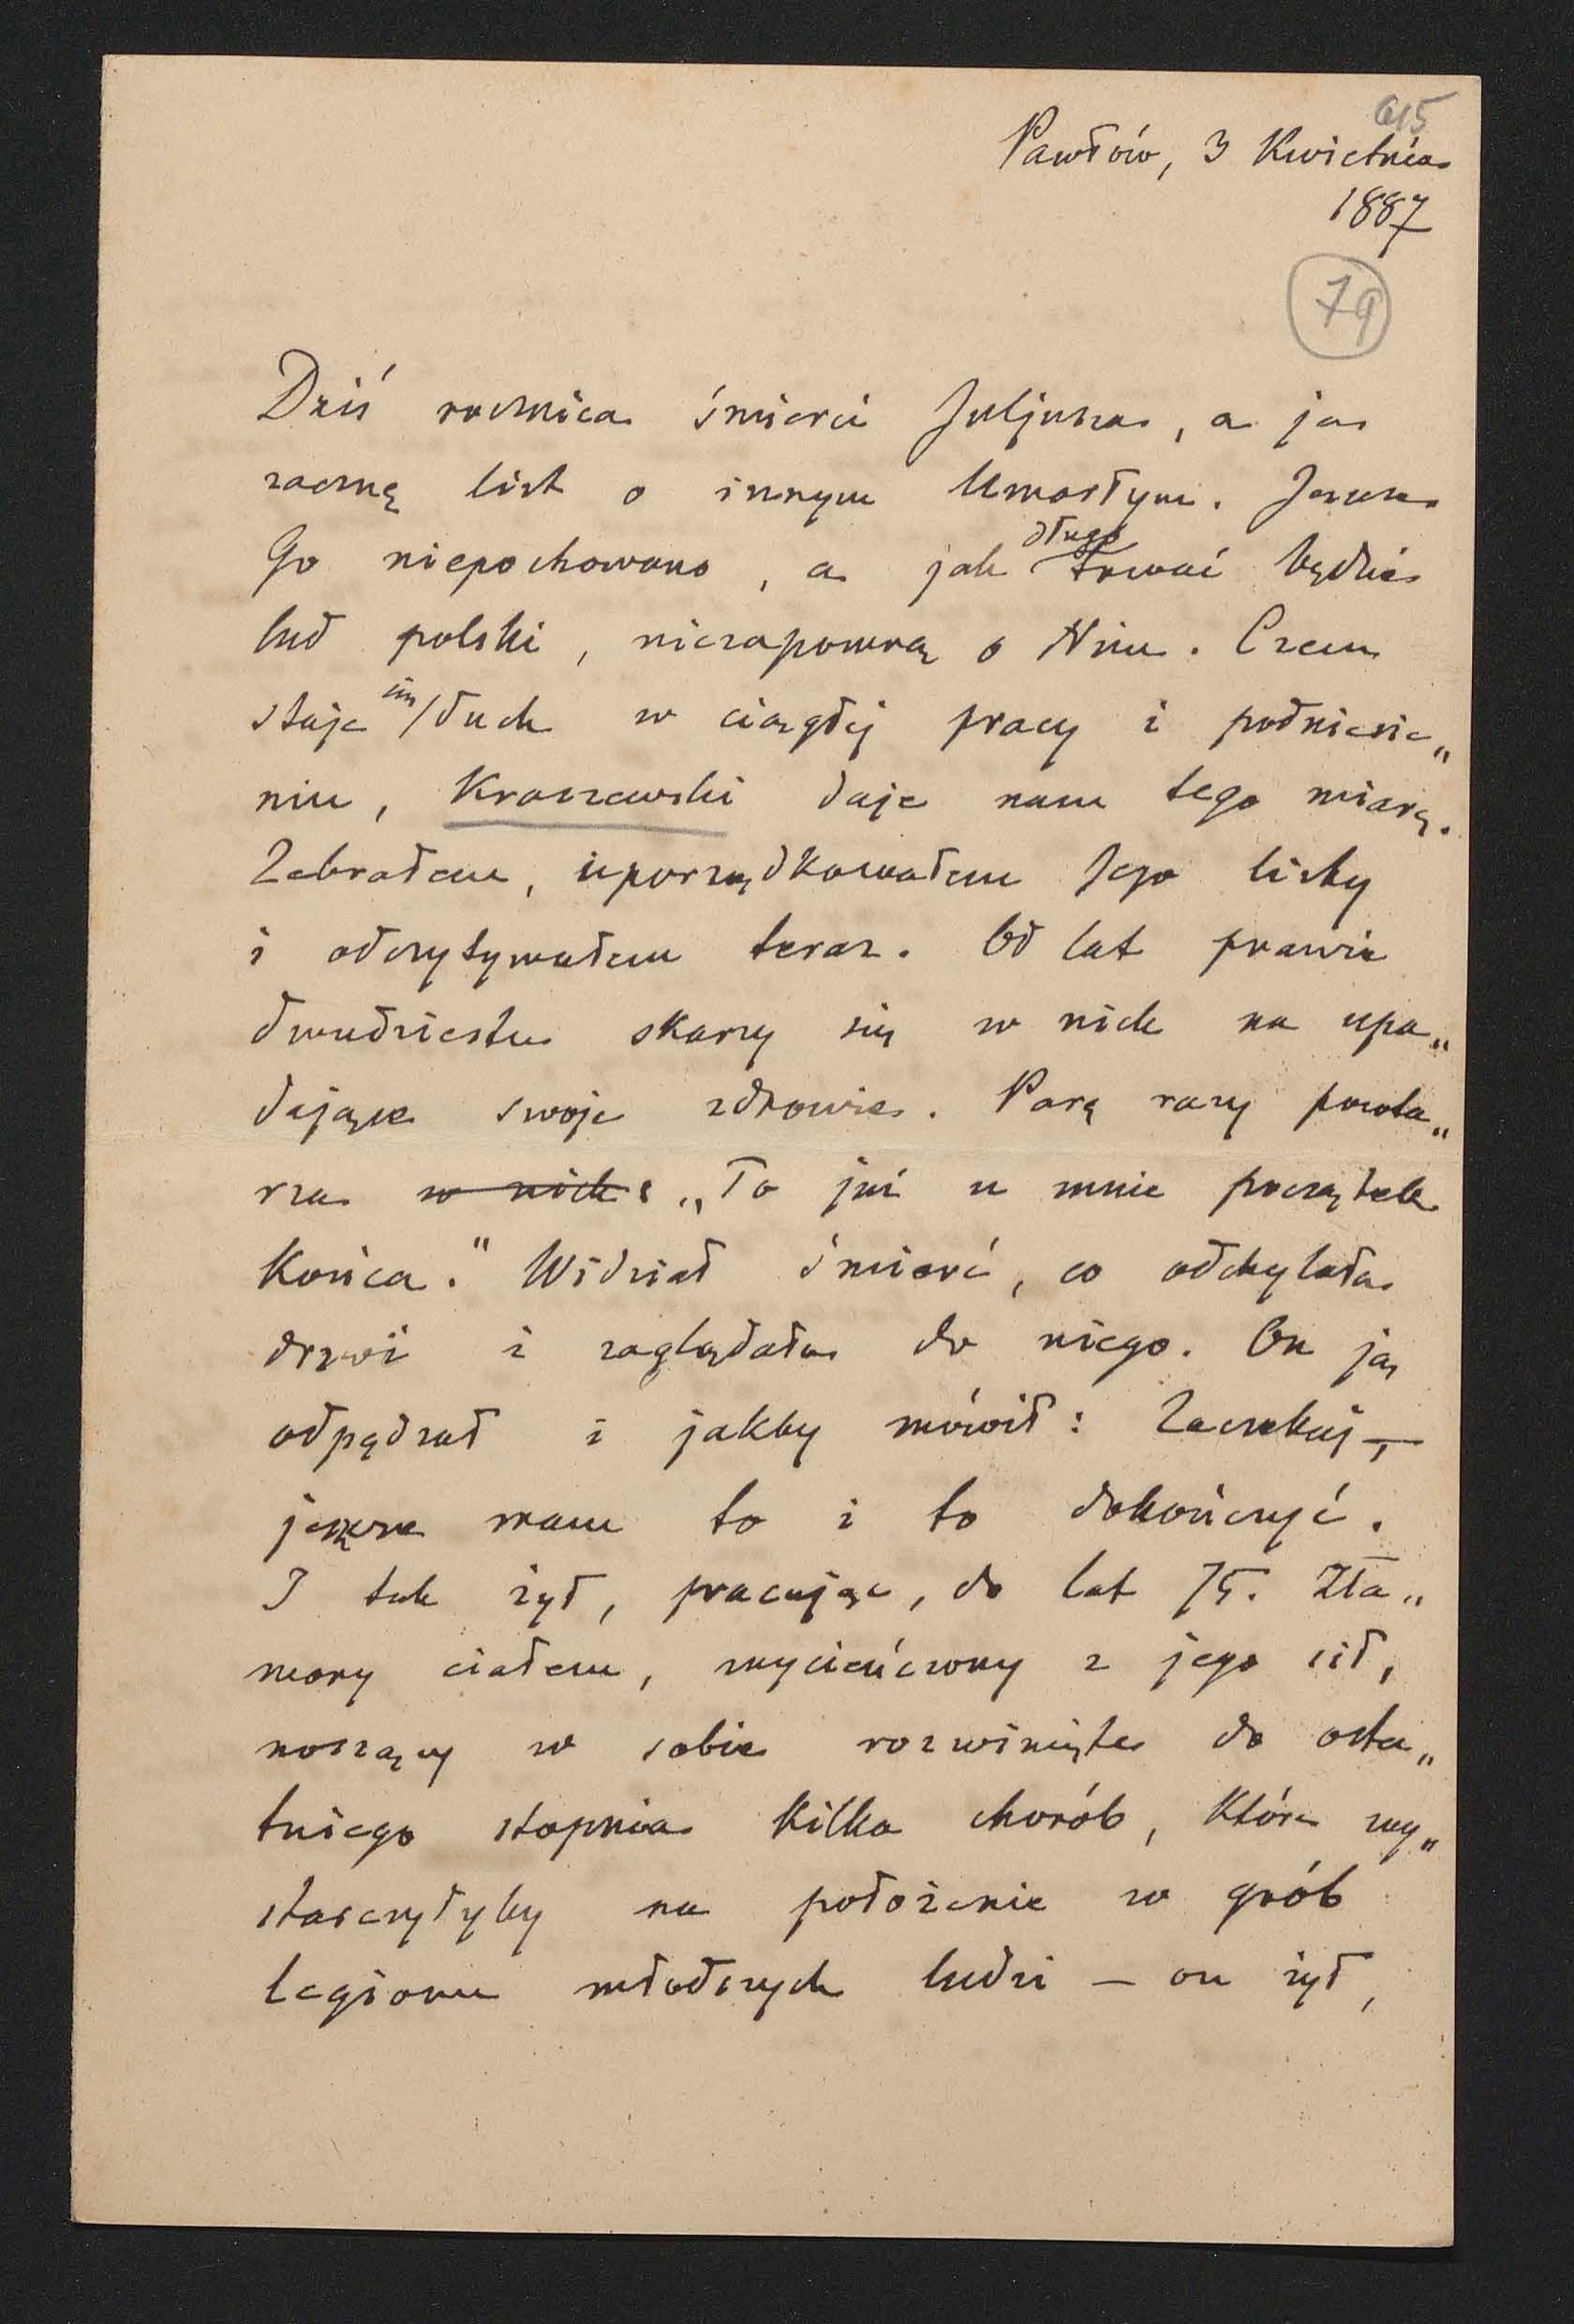 615
Pawłów, 3 Kwietnia
1887
79
Dziś rocznica śmierci Juljusza, a ja
zacznę list o innym Umarłym. Jeszcze
Go niepochowano, a jak długo trwać będzie
lud polski, niezapomną o Nim. Czem
staje się/duch w ciągłej pracy i podniesie„
niu, Kraszewski daje nam tego miarę.
Zebrałem, uporządkowałem Jego listy
i odczytywałem teraz. Od lat prawie
dwudziestu skarzy się w nich na upa„
dające swoje zdrowie. Parę razy powta„
rza w nich: „To już u mnie początek
Końca." Widział śmierć, co odchylała
drzwi i zaglądała do niego. On ją
odpędzał i jakby mówił: Zaczekaj —,
jeszcze mam to i to dokończyć.
I tak żył, pracując, do lat 75. Zła„
many ciałem, wycieńczony z jego sił,
noszący w sobie rozwinięte do osta„
tniego stopnia Kilka chorób, Które wy„
starczyłyby na położenie w grób
legionu młodszych ludzi — on żył,